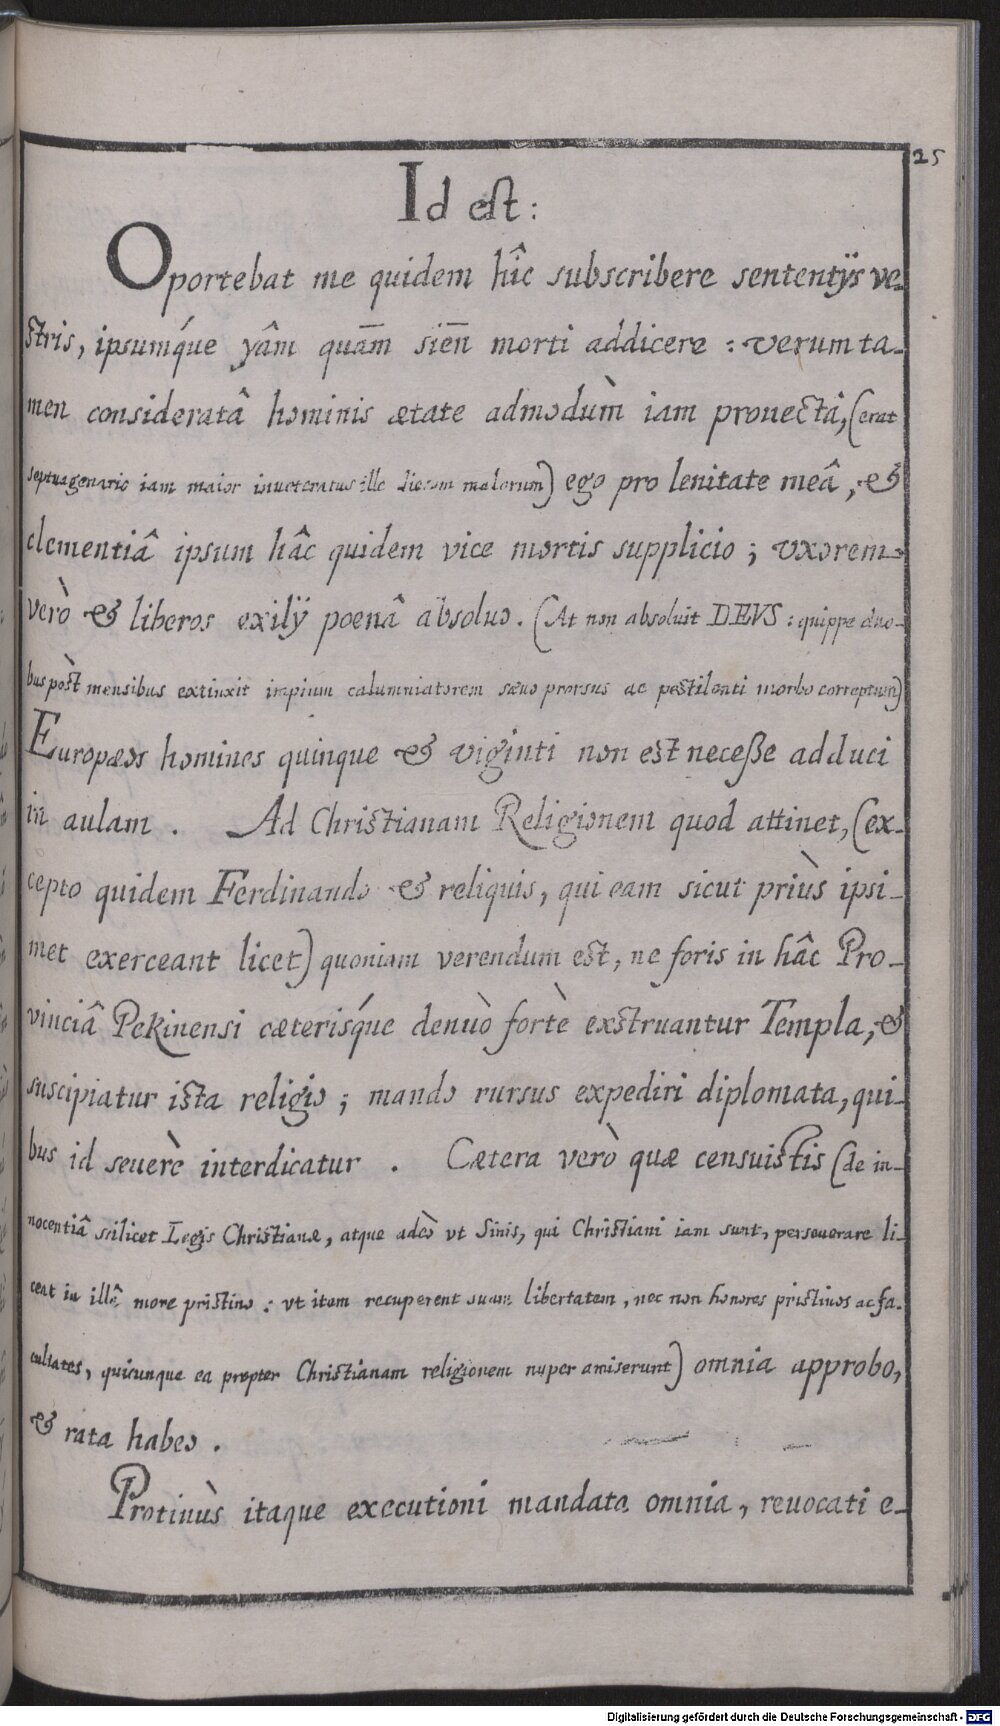 25
Id est:
Oportebat me quidem hîc subscribere sententijs ve-
stris, ipsumq́ue yâm quam̄ sien̄ morti addicere : verum ta-
men consideratâ hominis ætate admodùm iam prouectâ, (erat
septuagenario iam maior inueteratus ille dierum malorum) ego pro lenitate meâ, &
clementiâ ipsum hâc quidem vice mortis supplicio ; vxorem
verò & liberos exilij poenâ absoluo. (At non absoluit DEVS : quippe duo-
bus pòst mensibus extinxit impium calumniatorem sæuo prorsus ac pestilenti morbo correptum)
Europæos homines quinque & viginti non est necesse adduci
in aulam . Ad Christianam Religionem quod attinet, (ex-
cepto quidem Ferdinando & reliquis, qui eam sicut priùs ipsi-
met exerceant licet) quoniam verendum est, ne foris in hâc Pro-
vinciâ Pekinensi cæterisq́ue denuò fortè exstruantur Templa, &
suscipiatur ista religio ; mando rursus expediri diplomata, qui-
bus id seuerè interdicatur . Cætera verò quæ censuistis (de in-
nocentiâ scilicet Legis Christianæ, atque adeò vt Sinis, qui Christiani iam sunt, perseuerare li-
ceat in illâ more pristino : vt item recuperent suam libertatem, nec non honores pristinos ac fa-
cultates, quicunque ea propter Christianam religionem nuper amiserunt) omnia approbo,
& rata habeo .
Protinùs itaque executioni mandata omnia, reuocati e-
Digitalisierung gefördert durch die Deutsche Forschungsgemeinschaft - DFG